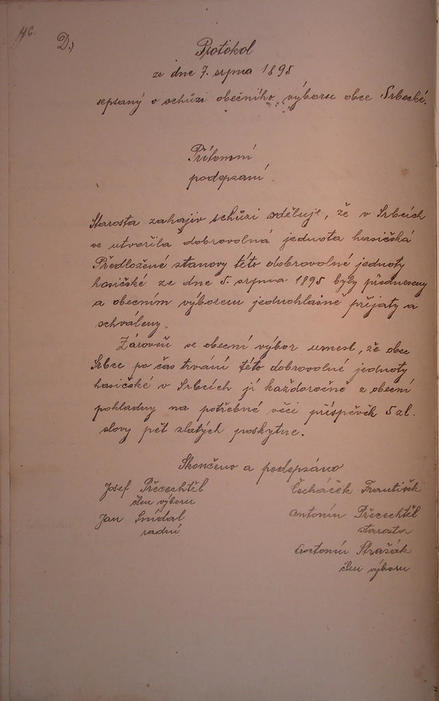 D.,
Protokol
ze dne 7. srpna 1895
sepsaný o schůzi obecního výboru obce Srbecké.
Přítomní
podepsaní.
Starosta zahajiv schůzi sděluje, že v Srbcích
se utvořila dobrovolná jednota hasičská
Předložené stanovy této dobrovolné jednoty
hasičské ze dne 5. srpna 1895 byly předneseny
a obecním výborem jednohlasně přijaty a
schváleny.
Zároveň se obecní výbor usnesl, že obec
Srbce po čas trvání této dobrovolné jednoty
hasičské v Srbcích jí každoročně z obecní
pokladny na potřebné věci příspěvek 5 zl.
slovy pět zlatých poskytne.
Skončeno a podepsáno
Josef Přecechtěl
člen výboru
Jan Snídal
radní
Čecháček František
Antonín Přecechtěl
starosta
Antonín Stražák
člen výboru